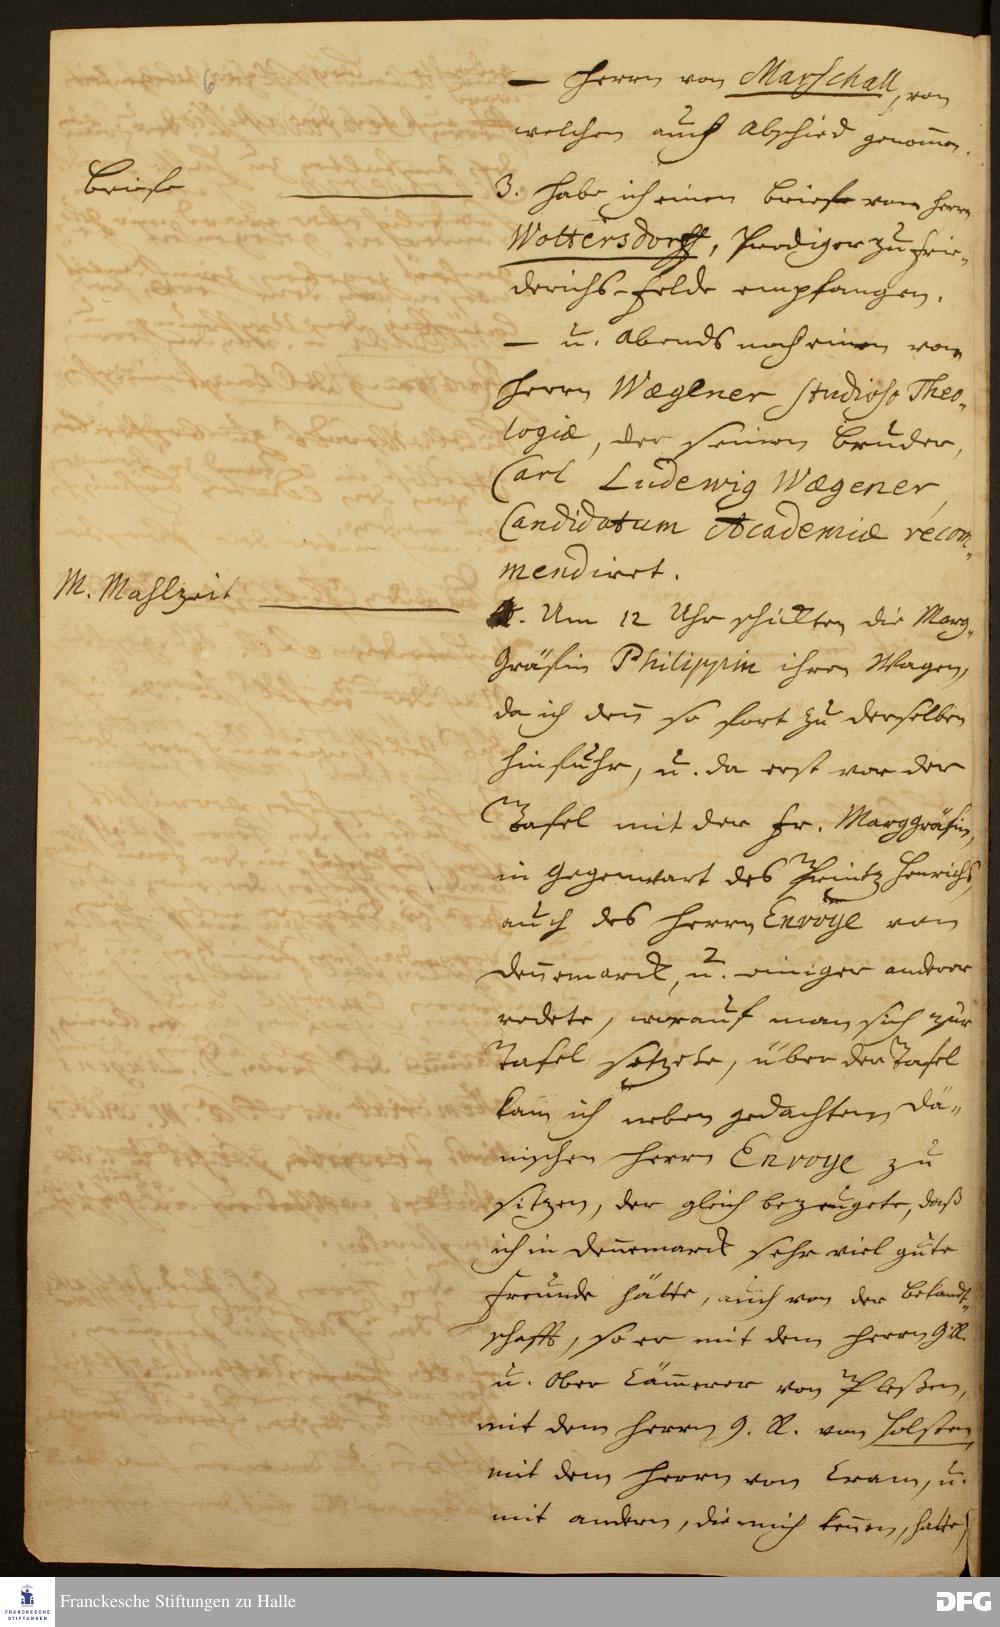 6
— Herrn von Marschall, von
welchen auch Abschied genom̄en.
Briefe
3. Habe ich einen Brief vom Herrn
Woltersdorff, Prediger zu Frie-
derichs-Felde empfangen.
— u. Abends noch einen von
Herrn Wægener Studioso Theo-
logiæ, der seinen Bruder,
Carl Ludewig Wægener
Candidatum Academiæ recom-
mendiret.
M. Mahlzeit
4. Um 12 Uhr schickten die Marg-
Gräfin Philippin ihren Wagen,
da ich den̄ so fort zu derselben
hinfuhr, u. da erst vor der
Tafel mit der Fr. Marggräfin,
in Gegenwart des Printz Henrichs,
auch des Herrn Envoye von
Den̄emarck, u. einiger anderer
redete, worauf man sich zur
Tafel setzete, über der Tafel
kam ich neben gedachtem Dä-
nischen Herrn Envoye zu
sitzen, der gleich bezeugete, daß
ich in Den̄emarck sehr viel gute
Freunde hätte, auch von der Bekandt-
schafft, so er mit dem Herrn G. R.
u. Ober Cäm̄erer von Pleßen,
mit dem Herrn G. R. von Holsten,
mit dem Herrn von Cram, u.
mit andern, die mich ken̄en, hatte,
Franckesche Stiftungen zu Halle
FRANCKESCHE
STIFTUNGEN
DFG